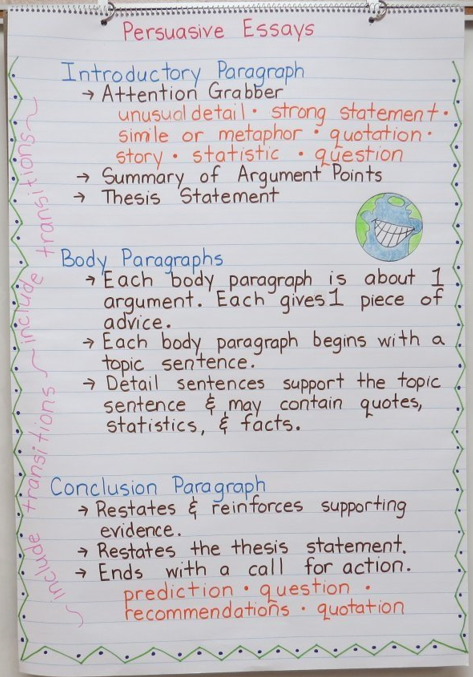 Persuasive Essays
Introductory Paragraph
→ Attention Grabber
unusual detail • strong statement •
simile or metaphor • quotation •
story • statistic • question
→ Summary of Argument Points
→ Thesis Statement
Body Paragraphs
→ Each body paragraph is about 1
argument. Each gives 1 piece of
advice.
→ Each body paragraph begins with a
topic sentence.
→ Detail sentences support the topic
sentence & may contain quotes,
statistics, & facts.
Conclusion Paragraph
→ Restates & reinforces supporting
evidence.
→ Restates the thesis statement.
→ Ends with a call for action.
prediction • question •
recommendations • quotation
~ include transitions ~ include transitions ~